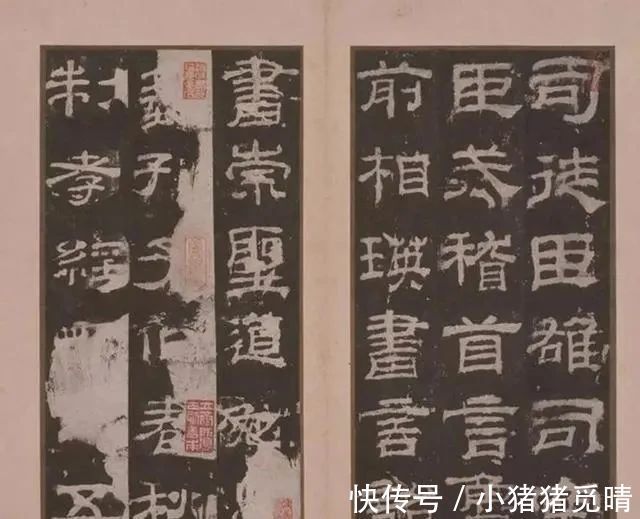 司徒臣雄司
臣戒稽首言
前相瑛書言
書崇聖道勉
孔子作春秋
制孝經 五
快传号 / 小猪猪觅晴